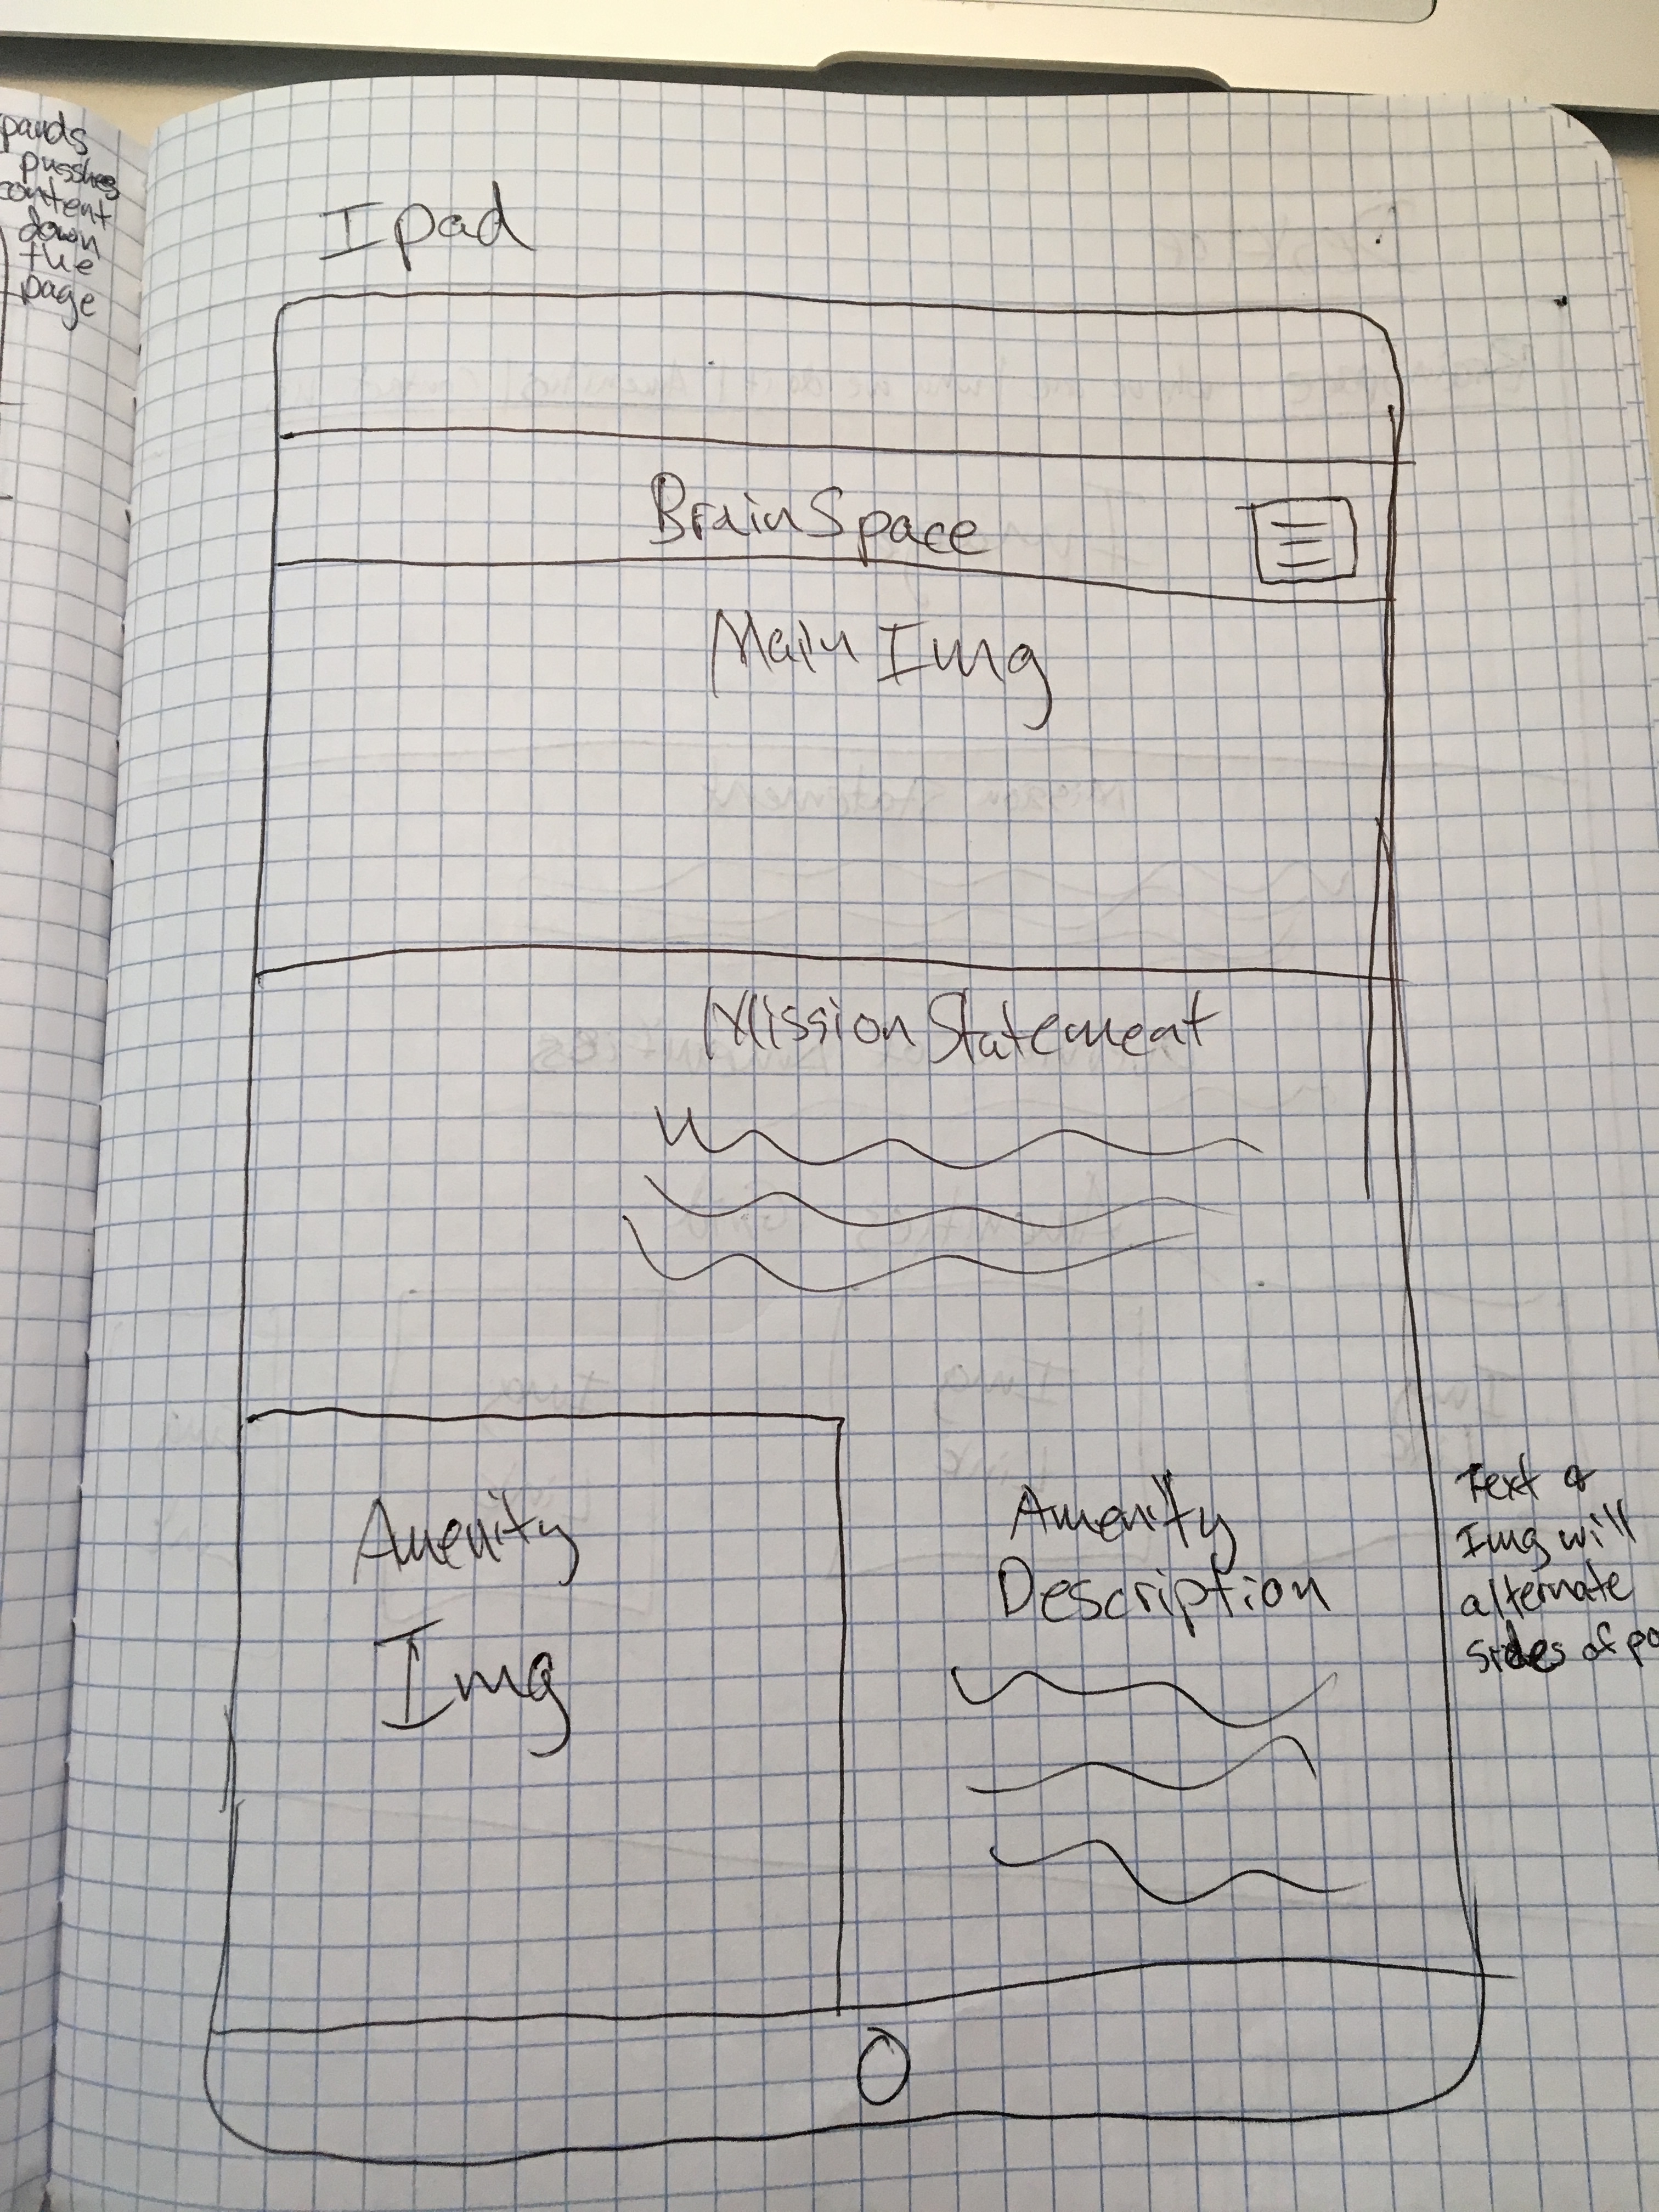 pands
pusshes
content
down
the
page
Ipad
BrainSpace
Main Img
Mission Statement
Amenity
Img
Amenity
Description
Text &
Img will
alternate
sides of